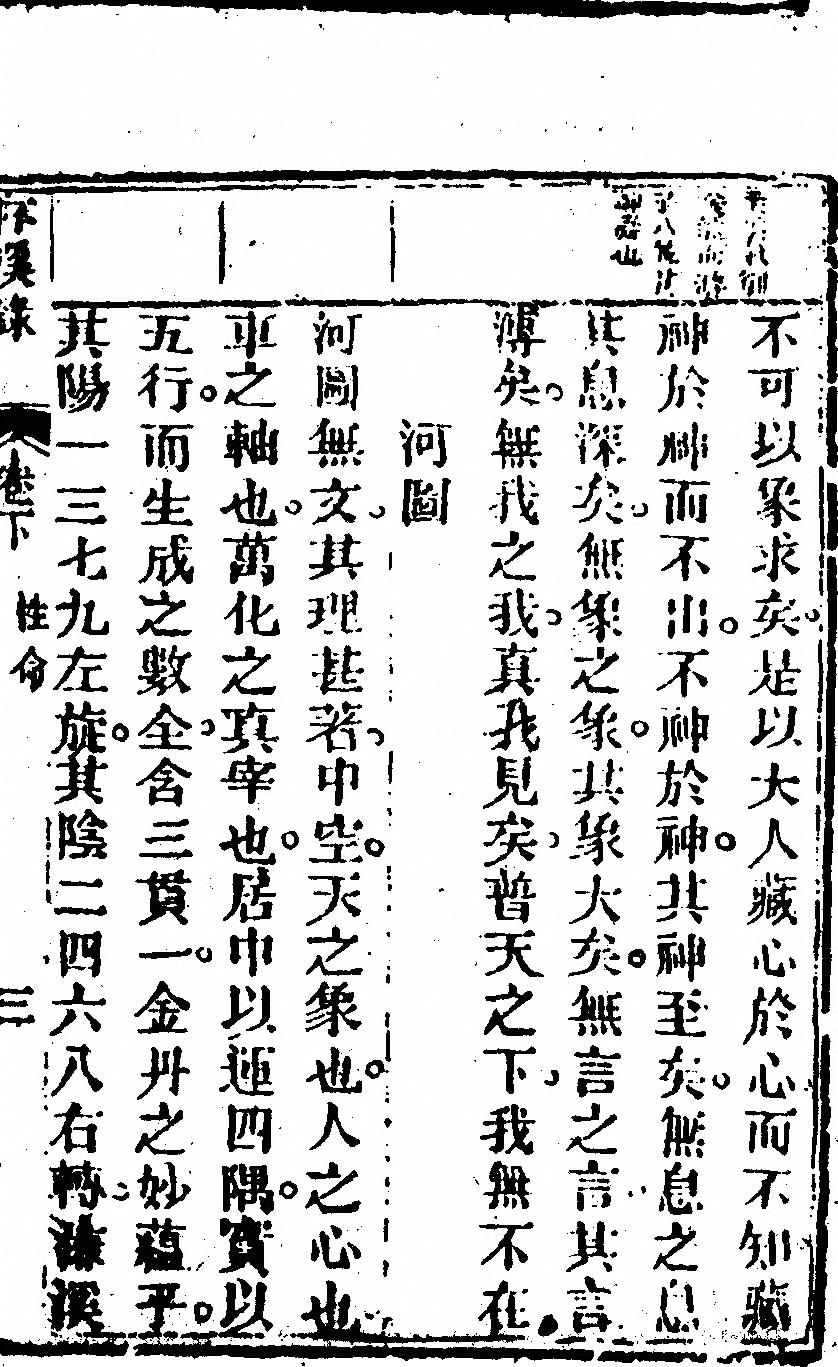 不可以象求矣是以大人藏心於心而不知藏
神於神而不出不神於神其神至矣無息之息
其息深矣無象之象其象大矣無言之言其言
溥矣無我之我真我見矣普天之下我無不在
河圖
河圖無文其理甚著中空天之象也人之心也
車之軸也萬化之真宰也居中以運四隅實以
五行而生成之數全含三貫一金丹之妙蘊乎
其陽一三七九左旋其陰二四六八右轉濂溪
溪錄 卷下 性命 三